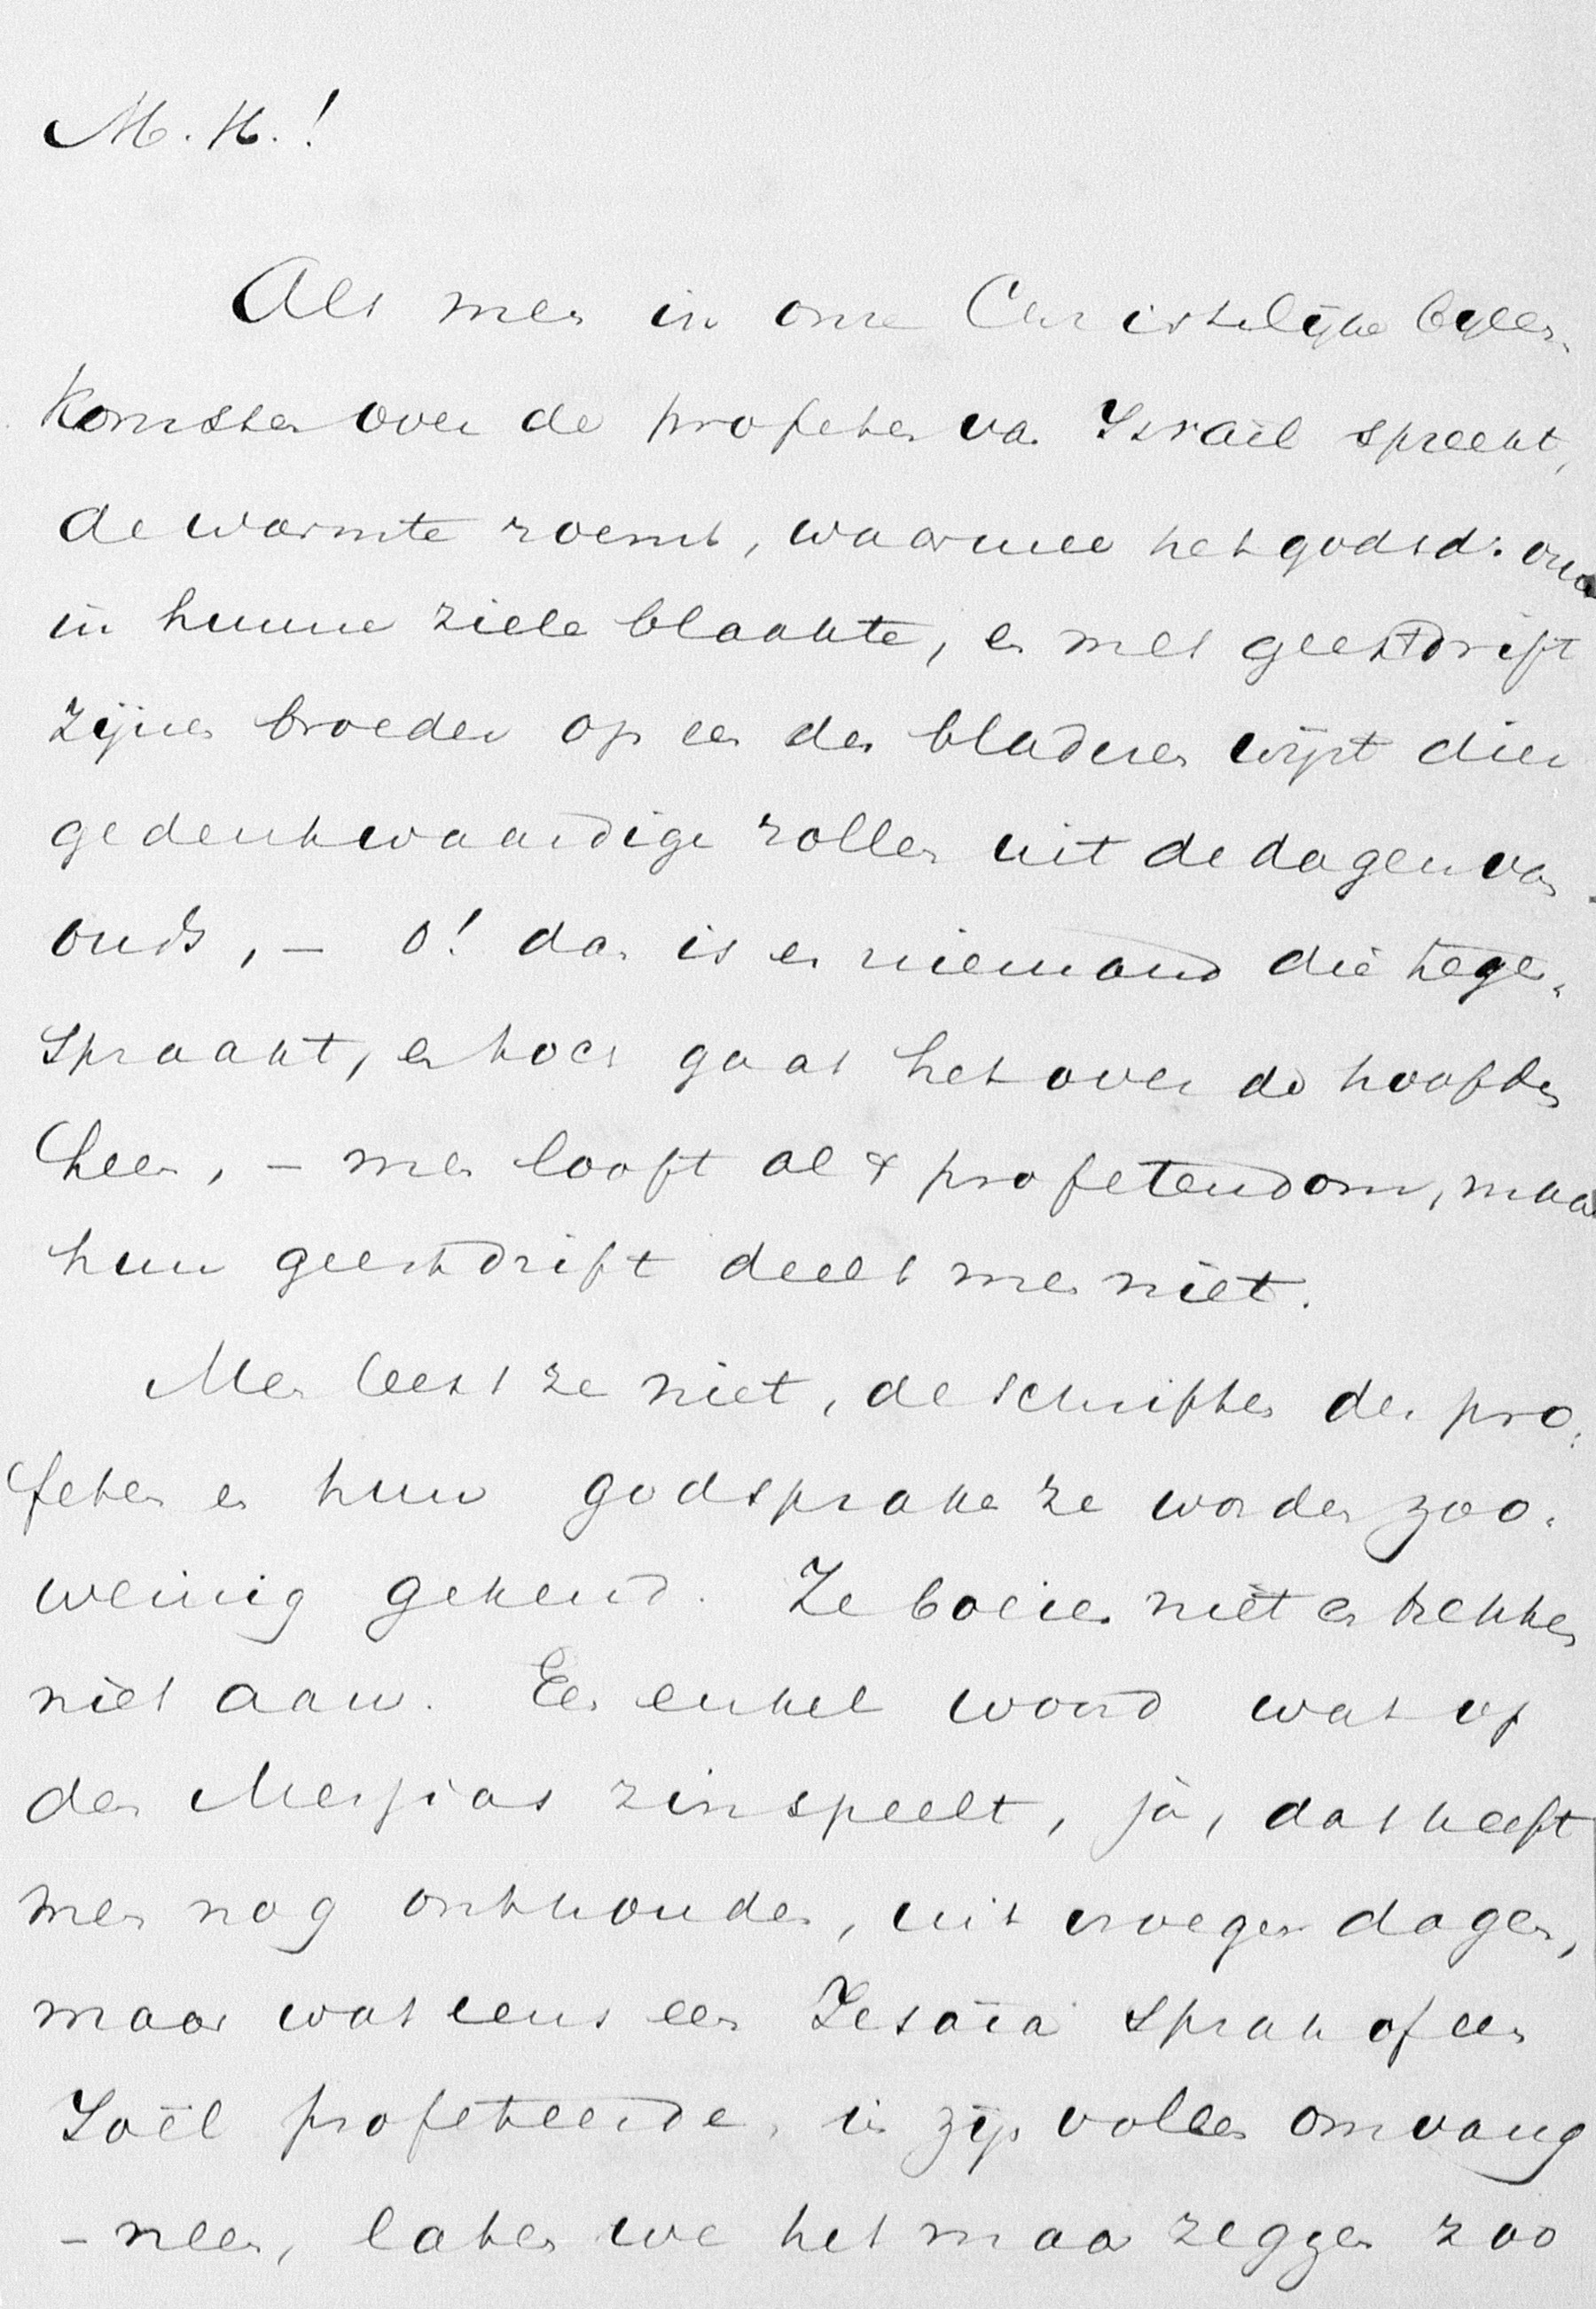 M. H.!
Als men in onze Christelijke byeen-
komsten over de profeten van Israël spreekt,
de warmte roemt, waarmee het godsd.
in hunne ziele blaakte, en met geestdrift
zijnen broeder op een der bladeren wijst dier
gedenkwaardige rollen uit de dagen van
ouds, – o! dan is er niemand die tegen-
spraakt, en toch gaat het over de hoofden
heen, – men looft al 't profetendom, maar
hun geestdrift deelt men niet.
Men leest ze niet, de schriften der pro-
feten en hun godspraken ze worden zoo-
weinig gekend. Ze boeien niet en trekken
niet aan. Een enkel woord wat op
den Messias zinspeelt, ja, dat heeft
men nog onthouden, uit vroeger dagen,
maar wat eens een Jesaïa sprak of een
Joël profeteerde, in zijn vollen omvang
– neen, laten we het maar zeggen zoo